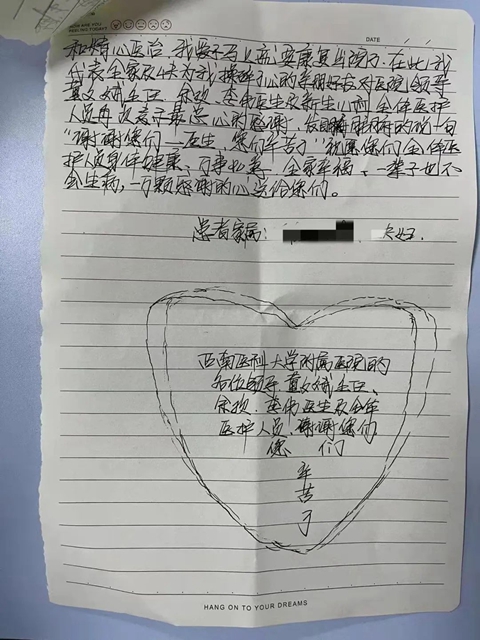 HOW ARE YOU
FEELING TODAY?
DATE
和精心医治，我爱子马上就要康复出院了。在此，我
代表全家及4床为我操碎心的亲朋好友对医院领导
董文斌主任、徐欢、李伟医生及新生儿科全体医护
人员再次表示最忠心的感谢，发自肺腑的说一句
“谢谢您们——医生，您们辛苦了”祝愿您们全体医
护人员身体健康、万事如意、全家幸福、一辈子也不
会生病，一万颗感谢的心送给您们。
患者家属：
夫妇.
西南医科大学附属医院的
各位领导董文斌主任、
徐欢、李伟医生及全体
医护人员！谢谢您们
您们
辛
苦
了
HANG ON TO YOUR DREAMS